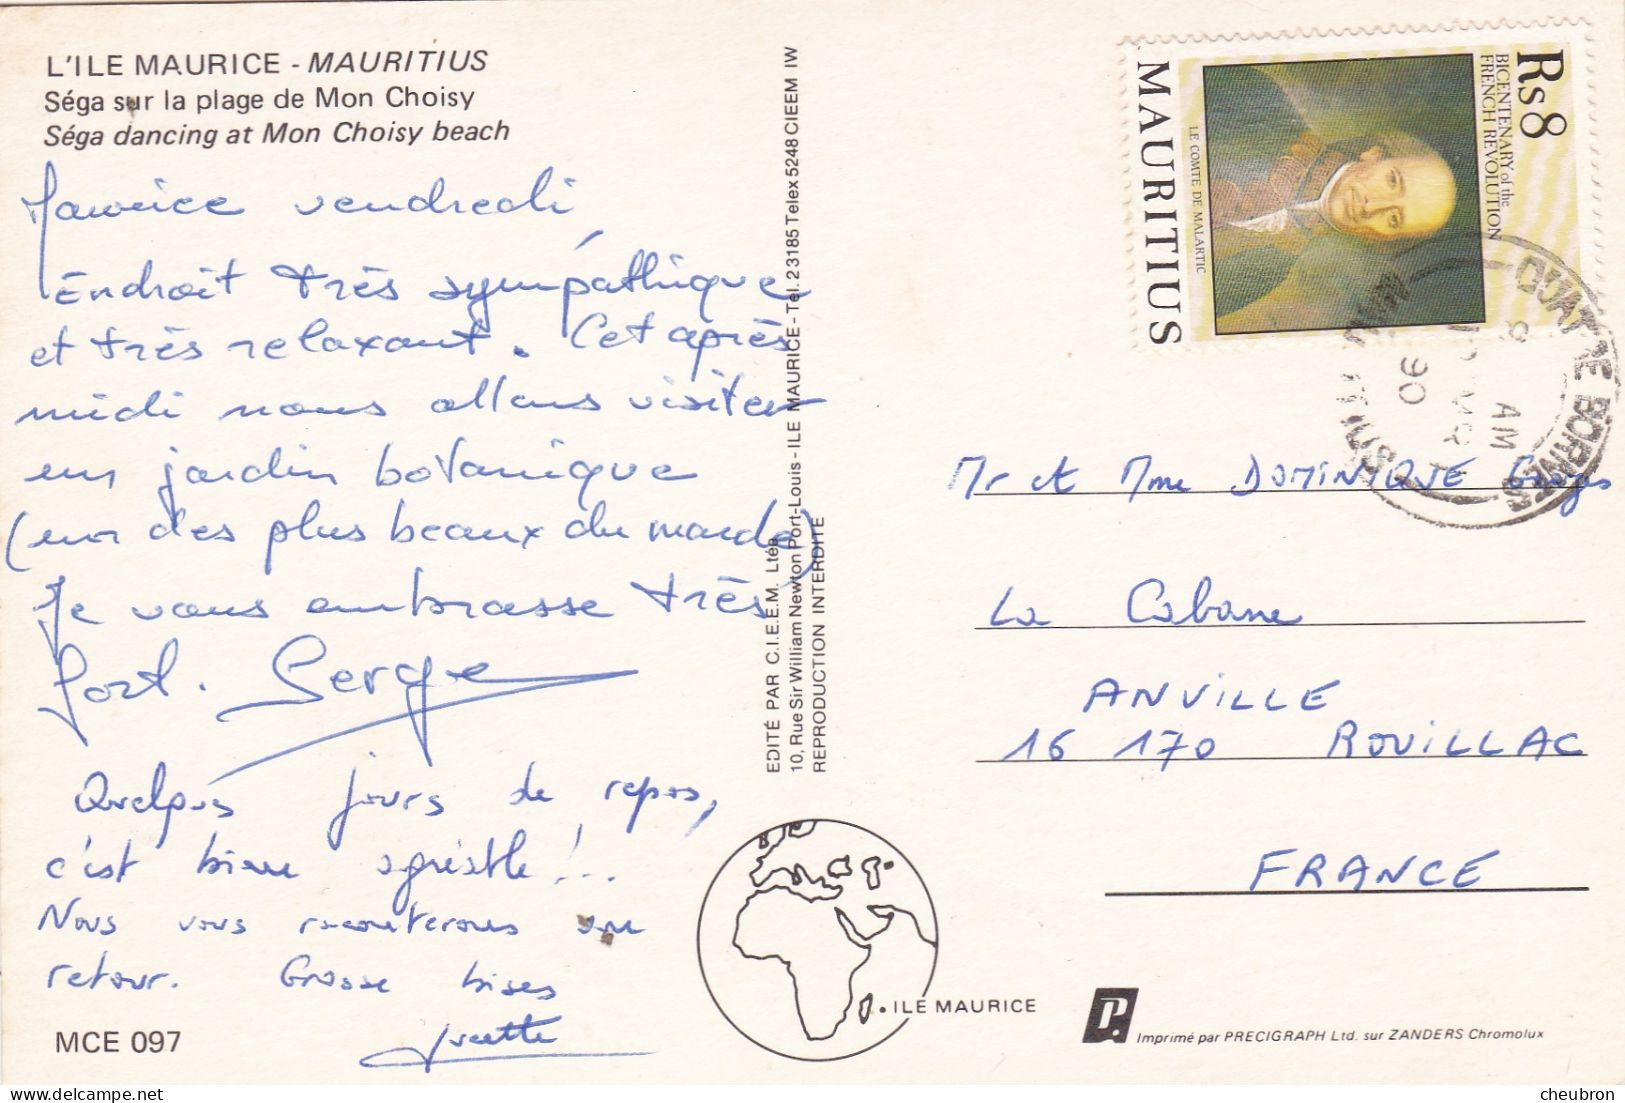 L'ILE MAURICE - MAURITIUS
Séga sur la plage de Mon Choisy
Séga dancing at Mon Choisy beach
Maurice vendredi
Endroit très sympathique
et très relaxant. Cet après
midi nous allons visiter
un jardin botanique
(un des plus beaux du monde)
Je vous embrasse très
fort. Serge
Quelques jours de repos,
c'est bien agréable !...
Nous vous raconterons au
retour. Grosse bises
MCE 097
EDITÉ PAR C.I.E.E.M. Ltée
10, Rue Sir William Newton Port-Louis - ILE MAURICE - Tel. 2 3185 Telex 5248 CIEEM IW
REPRODUCTION INTERDITE
Rs 8
BICENTENARY of the
FRENCH REVOLUTION
LE COMTE DE MALARTIC
MAURITIUS
QUATRE BORNES
AM
90
MAURITIUS
Mr et Mme DOMINIQUE Georges
La Cabane
ANVILLE
16 170 ROUILLAC
FRANCE
ILE MAURICE
P.
Imprimé par PRECIGRAPH Ltd. sur ZANDERS Chromolux
cheubron